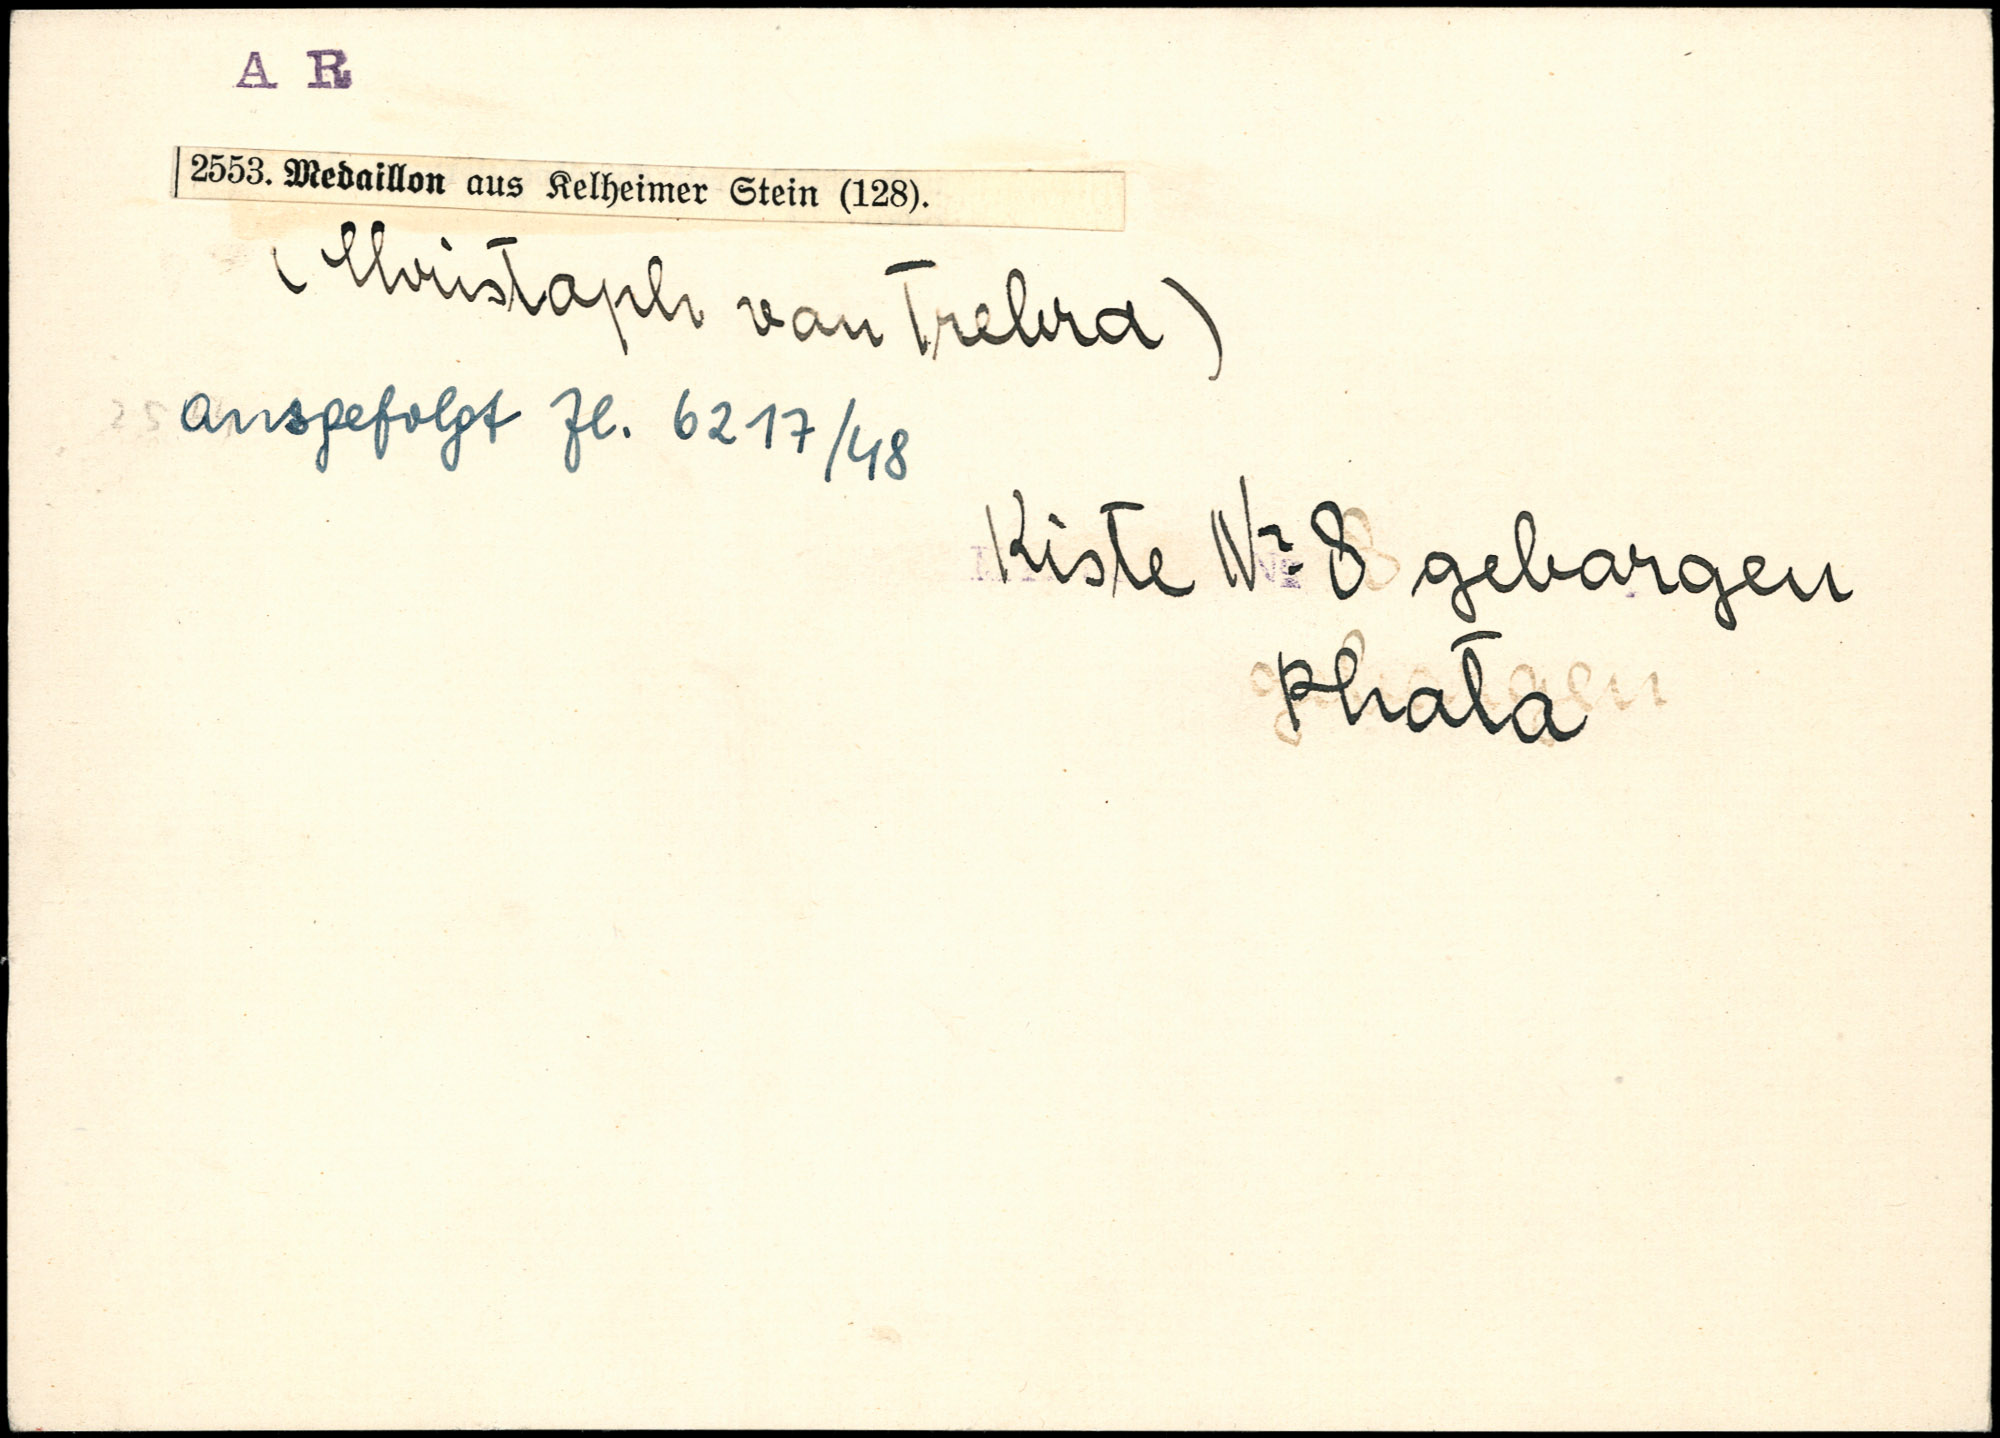 A R
2553. Medaillon aus Kelheimer Stein (128).
(Christoph von Trebra)
ausgefolgt Zl. 6217/48
Kiste Nr. 8 geborgen
Photo